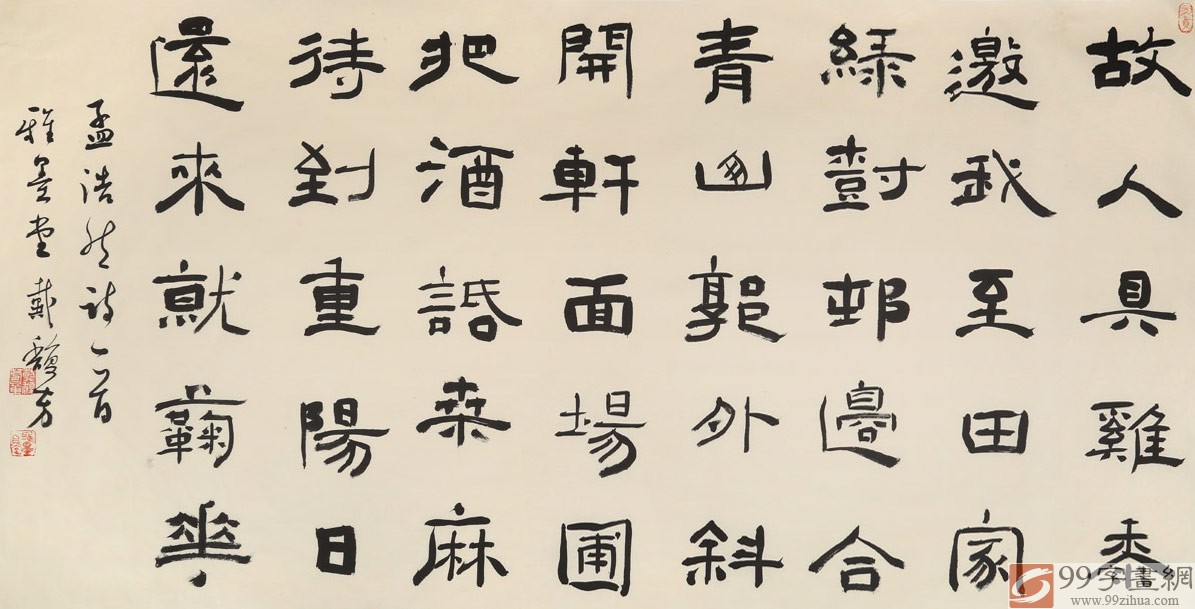 故人具雞黍
邀我至田家
綠尌邨邊合
青山郭外斜
開軒面場圃
把酒話桒麻
待到重陽日
還來就蘜華
孟浩然詩一首
雅墨堂戴馥芳
99字畫網
www.99zihua.com